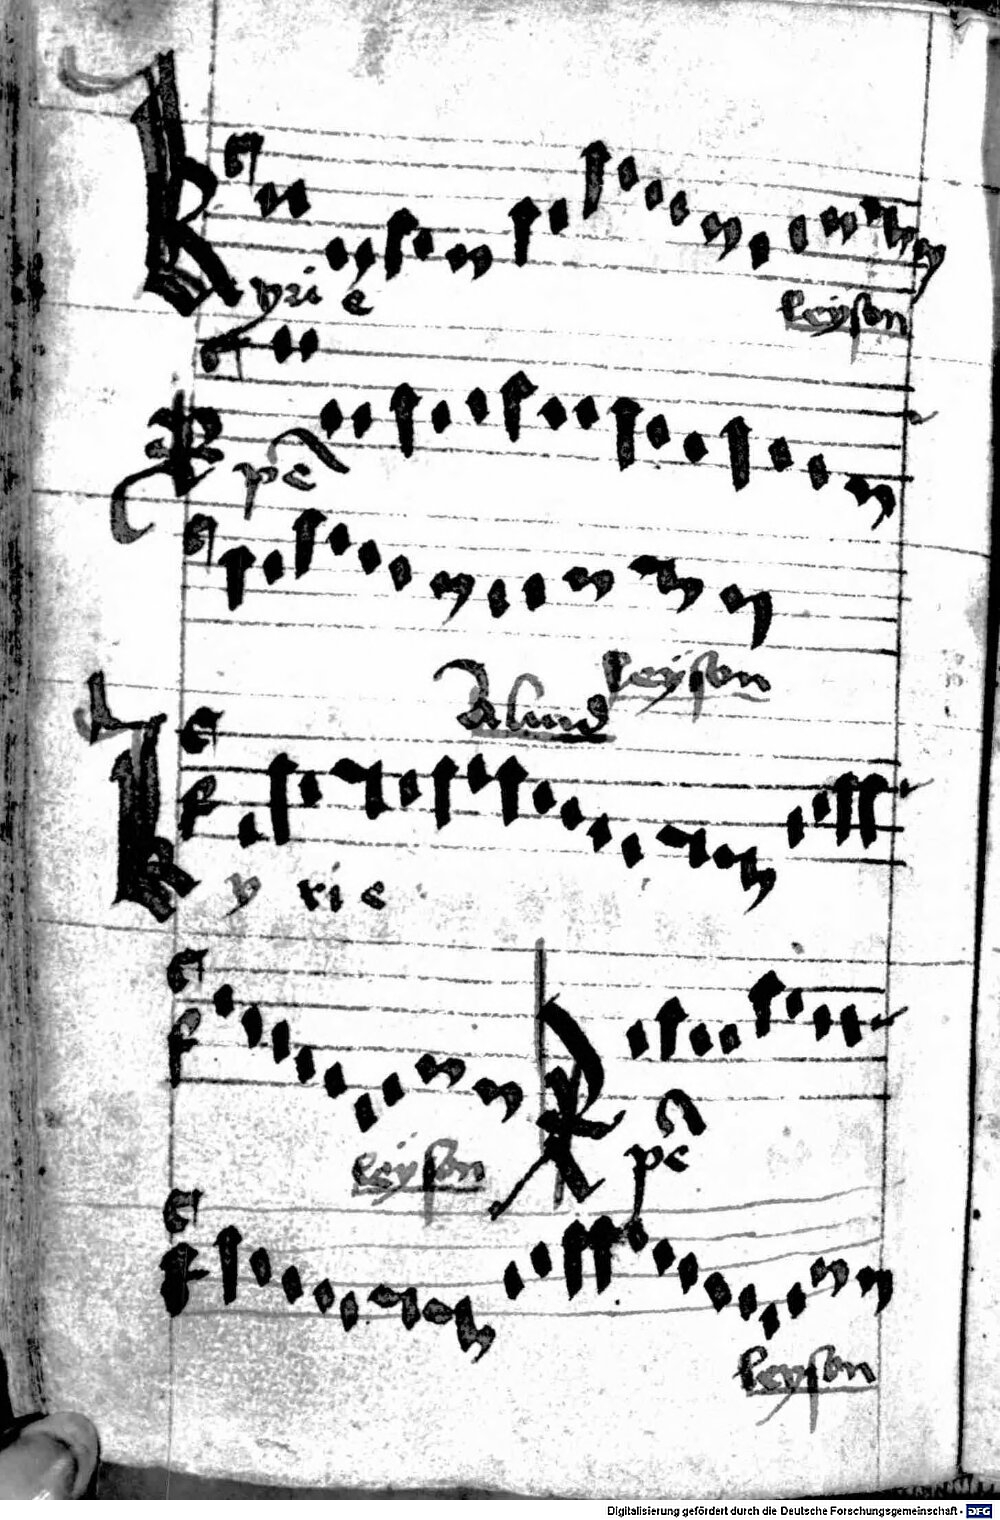 Kyrie leyson
pe
leyson
Aliud
Kyrie
leyson pe
leyson
Digitalisierung gefördert durch die Deutsche Forschungsgemeinschaft - DFG